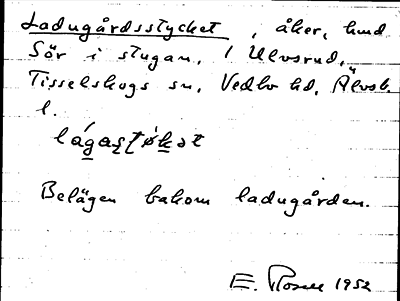 Ladugårdsstycket, åker, hmd
Sör i stugan, 1 Ulvsrud,
Tisselskogs sn, Vedbo hd, Älvsb.
l.
Belägen bakom ladugården.
E. Rosell 1952